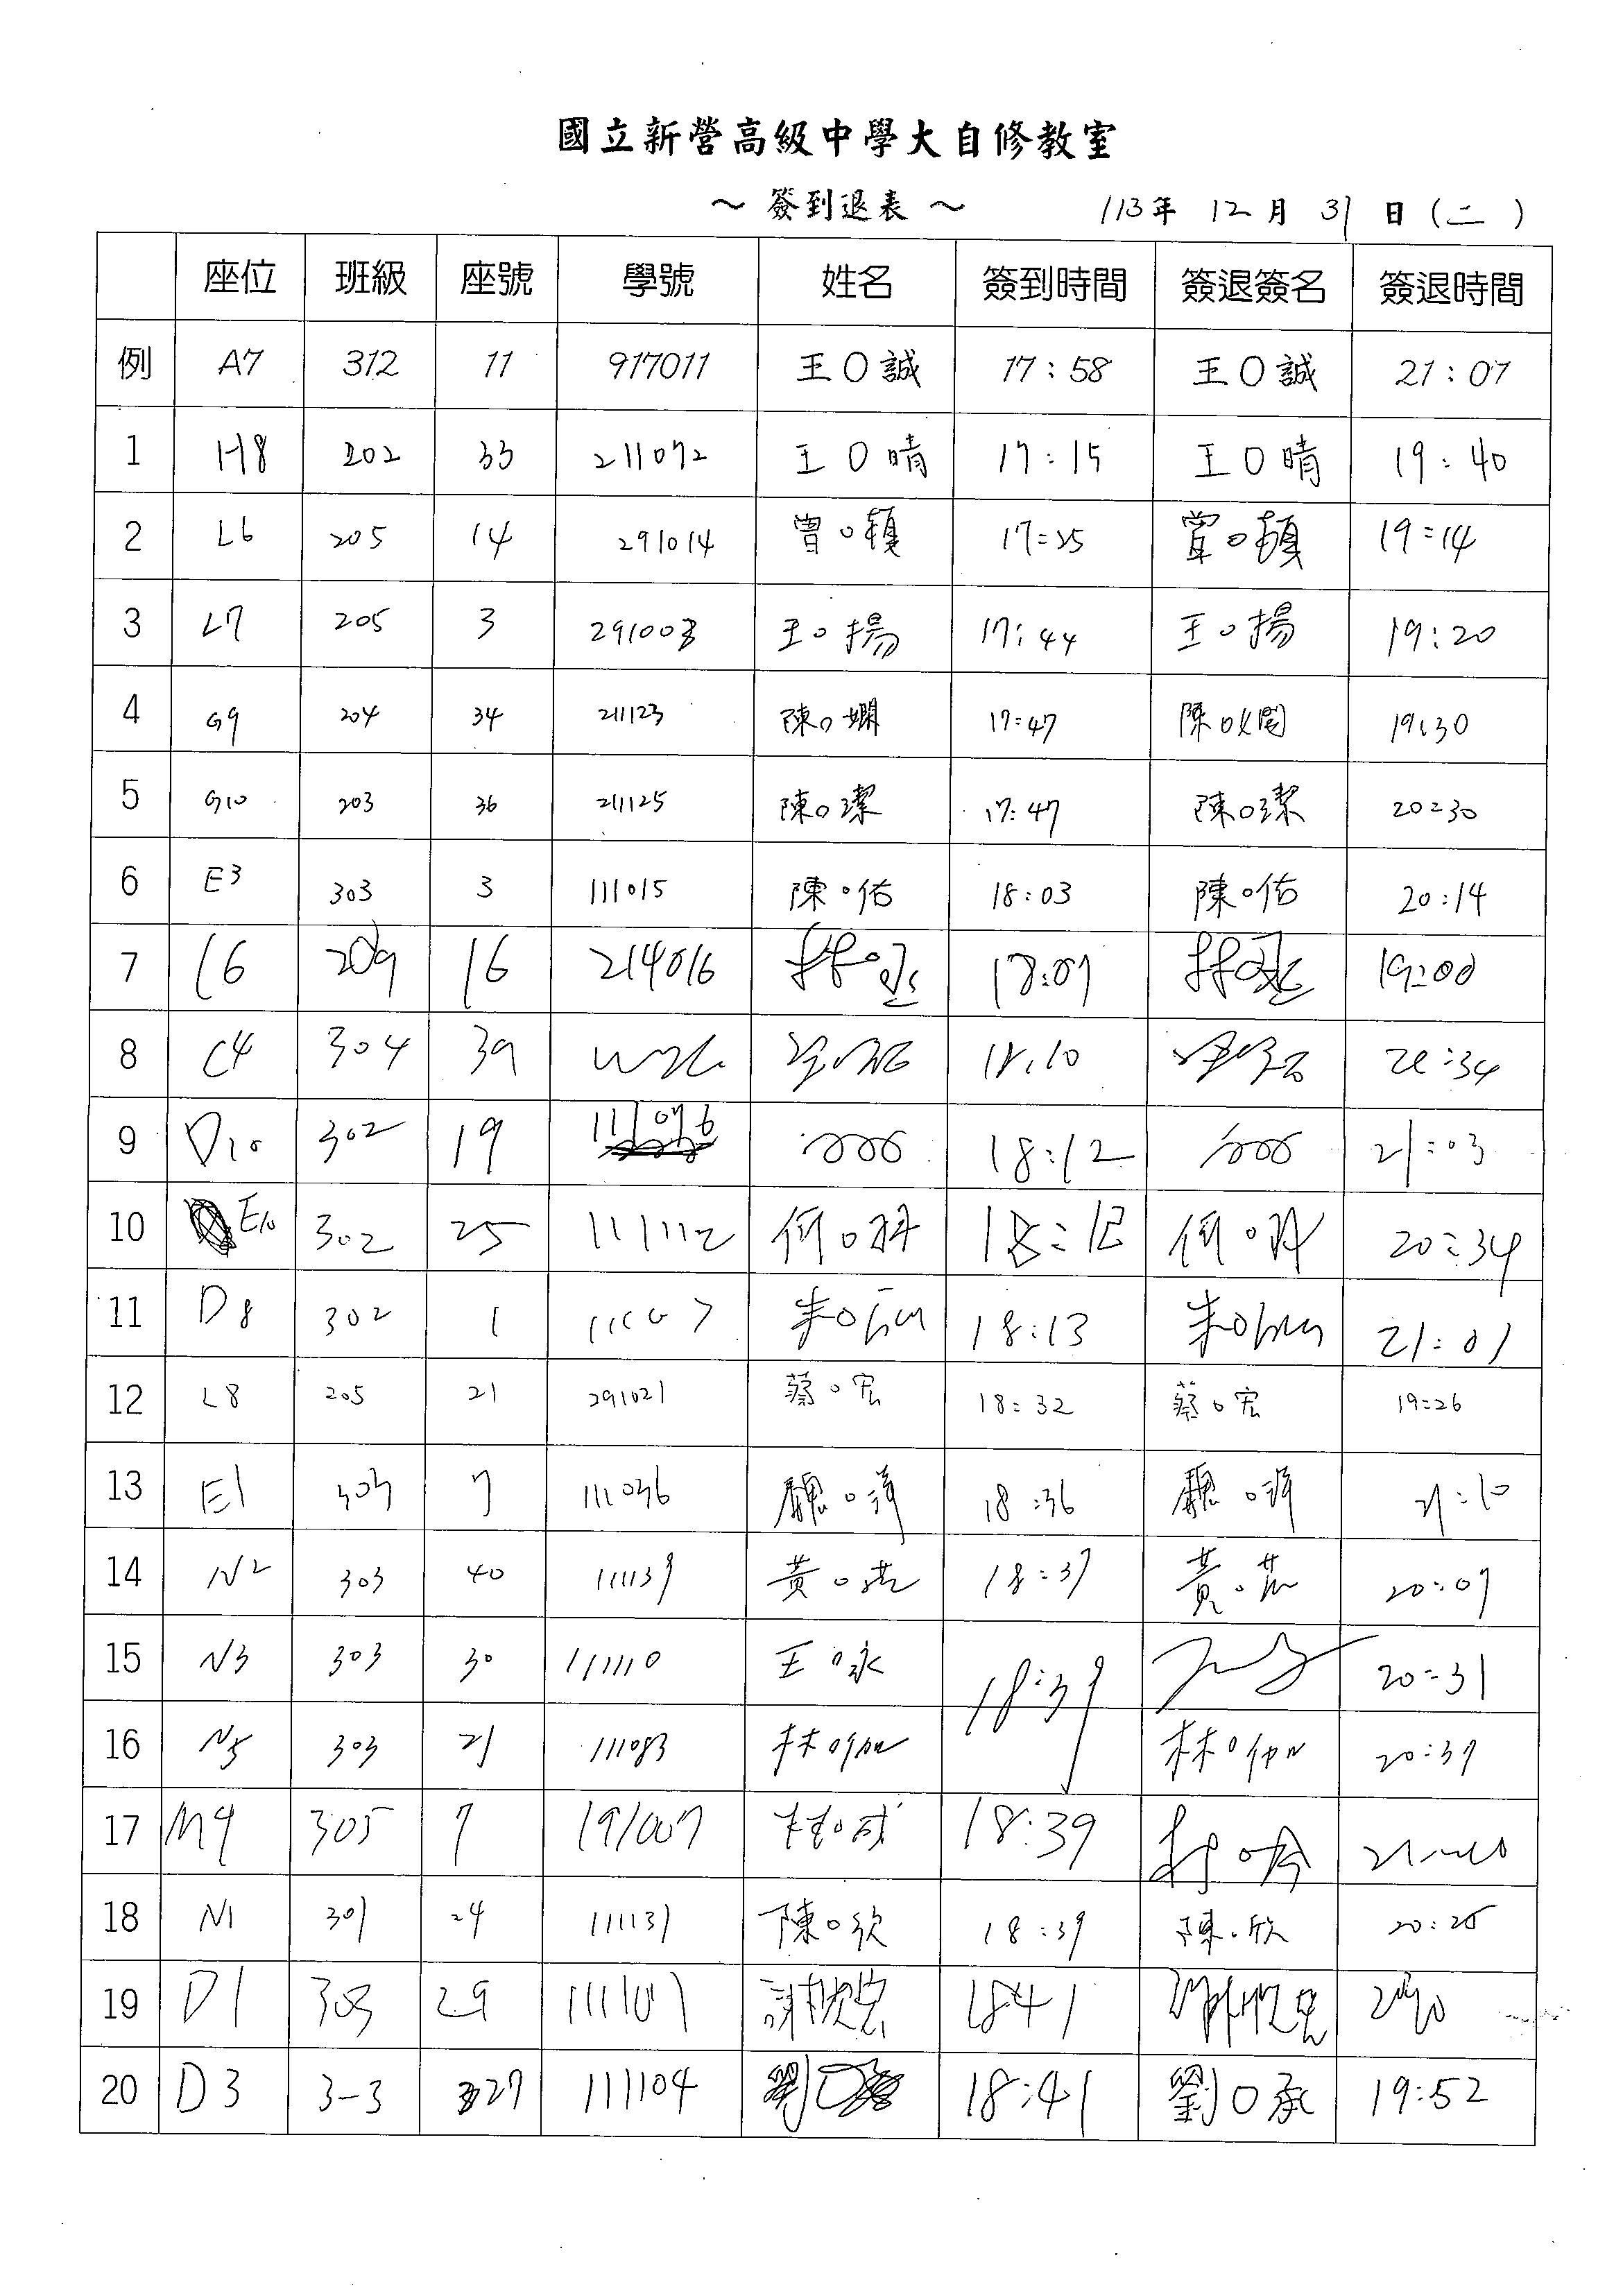 國立新營高級中學大自修教室
～ 簽到退表 ～ 113年 12月 31日(二)
座位 班級 座號 學號 姓名 簽到時間 簽退簽名 簽退時間
例 A7 312 11 917011 王〇誠 17:58 王〇誠 21:07
1 H8 202 33 211072 王〇晴 17:15 王〇晴 19:40
2 L6 205 14 291014 曾〇穎 17:25 曾〇穎 19:14
3 L7 205 3 291003 王〇揚 17:44 王〇揚 19:20
4 G9 204 34 211123 陳〇嫻 17:47 陳〇嫻 19:30
5 G10 203 36 211125 陳〇潔 17:47 陳〇潔 20:30
6 E3 303 3 111015 陳〇佑 18:03 陳〇佑 20:14
7 209 16 214016 18:07 19:00
8 C4 304 39 18:10
9 D10 302 19 111076 18:12 21:03
10 E10 302 25 111112 何〇 何〇 20:34
11 D8 302 1 朱〇 18:13 朱〇 21:01
12 L8 205 21 291021 蔡〇宏 18:32 蔡〇宏 19:26
13 E1 303 7 111036 魏〇 18:36 魏〇 21:10
14 N2 303 40 111139 黃〇 18:37 黃〇 20:07
15 N3 303 30 111110 王〇永 18:39 20:31
16 N5 303 21 111083 林〇 林〇 20:37
17 M4 305 7 191007 18:39
18 N1 301 24 111131 陳〇欣 18:39 陳〇欣 20:25
19 D1 303 29 111101 1841
20 D3 3-3 27 111104 劉〇 18:41 劉〇承 19:52